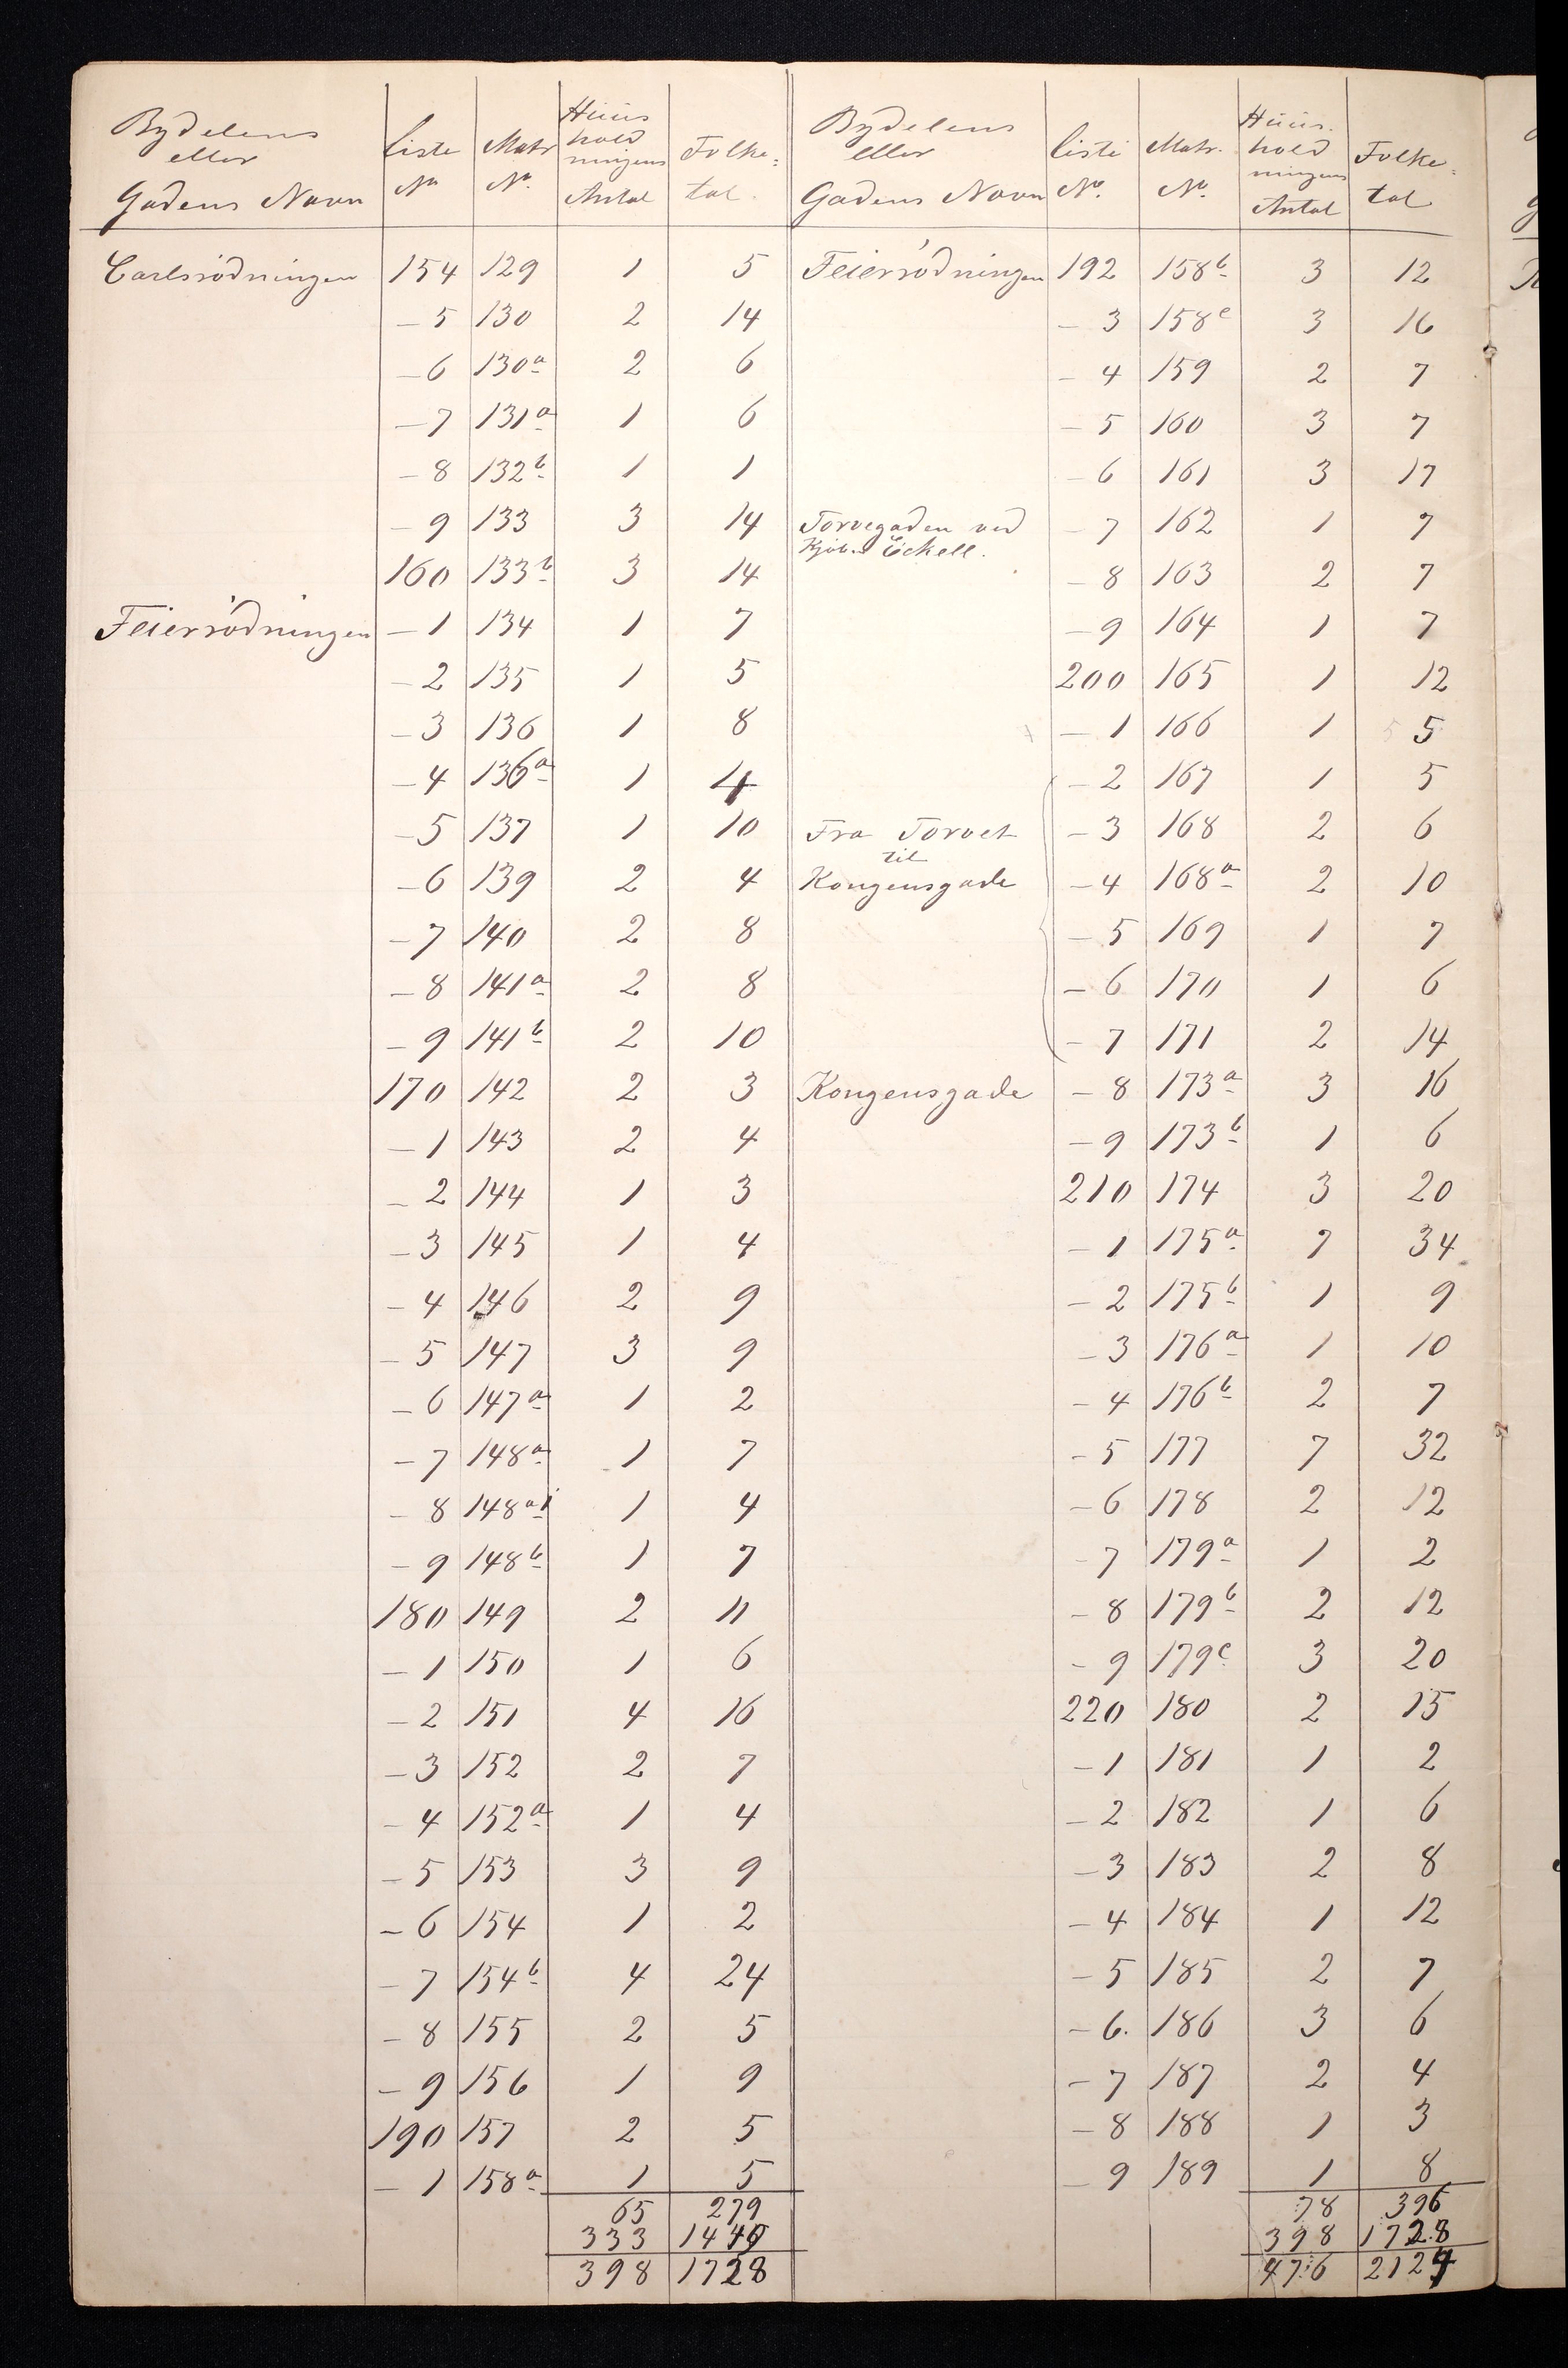 Bydelens eller Gadens Navn | Liste No | Matr No. | Huus hold ningens Antal | Folke= tal.
Carlsrødningen | 154 | 129 | 1 | 5
– 5 | 130 | 2 | 14
– 6 | 130a | 2 | 6
– 7 | 131a | 1 | 6
– 8 | 132b | 1 | 1
– 9 | 133 | 3 | 14
160 | 133b | 3 | 14
Feierrødningen | – 1 | 134 | 1 | 7
– 2 | 135 | 1 | 5
– 3 | 136 | 1 | 8
– 4 | 136a | 1 | 4
– 5 | 137 | 1 | 10
– 6 | 139 | 2 | 4
– 7 | 140 | 2 | 8
– 8 | 141a | 2 | 8
– 9 | 141b | 2 | 10
170 | 142 | 2 | 3
– 1 | 143 | 2 | 4
– 2 | 144 | 1 | 3
– 3 | 145 | 1 | 4
– 4 | 146 | 2 | 9
– 5 | 147 | 3 | 9
– 6 | 147a | 1 | 2
– 7 | 148a | 1 | 7
– 8 | 148a1 | 1 | 4
– 9 | 148b | 1 | 7
180 | 149 | 2 | 11
– 1 | 150 | 1 | 6
– 2 | 151 | 4 | 16
– 3 | 152 | 2 | 7
– 4 | 152a | 1 | 4
– 5 | 153 | 3 | 9
– 6 | 154 | 1 | 2
– 7 | 154b | 4 | 24
– 8 | 155 | 2 | 5
– 9 | 156 | 1 | 9
190 | 157 | 2 | 5
– 1 | 158a | 1 | 5
65 | 279
333 | 1449
398 | 1728
Bydelens eller Gadens Navn | Liste No. | Matr. No. | Huus. hold ningens Antal | Folke= tal
Feierrødningen | 192 | 158b | 3 | 12
– 3 | 158c | 3 | 16
– 4 | 159 | 2 | 7
– 5 | 160 | 3 | 7
– 6 | 161 | 3 | 17
Torvegaden ved Kjøb. Eckell. | – 7 | 162 | 1 | 7
– 8 | 163 | 2 | 7
– 9 | 164 | 1 | 7
200 | 165 | 1 | 12
– 1 | 166 | 1 | 5
– 2 | 167 | 1 | 5
Fra Torvet | – 3 | 168 | 2 | 6
til Kongensgade | – 4 | 168a | 2 | 10
– 5 | 169 | 1 | 7
– 6 | 170 | 1 | 6
– 7 | 171 | 2 | 14
Kongensgade | – 8 | 173a | 3 | 16
– 9 | 173b | 1 | 6
210 | 174 | 3 | 20
– 1 | 175a | 7 | 34
– 2 | 175b | 1 | 9
– 3 | 176a | 1 | 10
– 4 | 176b | 2 | 7
– 5 | 177 | 7 | 32
– 6 | 178 | 2 | 12
– 7 | 179a | 1 | 2
– 8 | 179b | 2 | 12
– 9 | 179c | 3 | 20
220 | 180 | 2 | 15
– 1 | 181 | 1 | 2
– 2 | 182 | 1 | 6
– 3 | 183 | 2 | 8
– 4 | 184 | 1 | 12
– 5 | 185 | 2 | 7
– 6. | 186 | 3 | 6
– 7 | 187 | 2 | 4
– 8 | 188 | 1 | 3
– 9 | 189 | 1 | 8
78 | 396
398 | 1728
476 | 2124